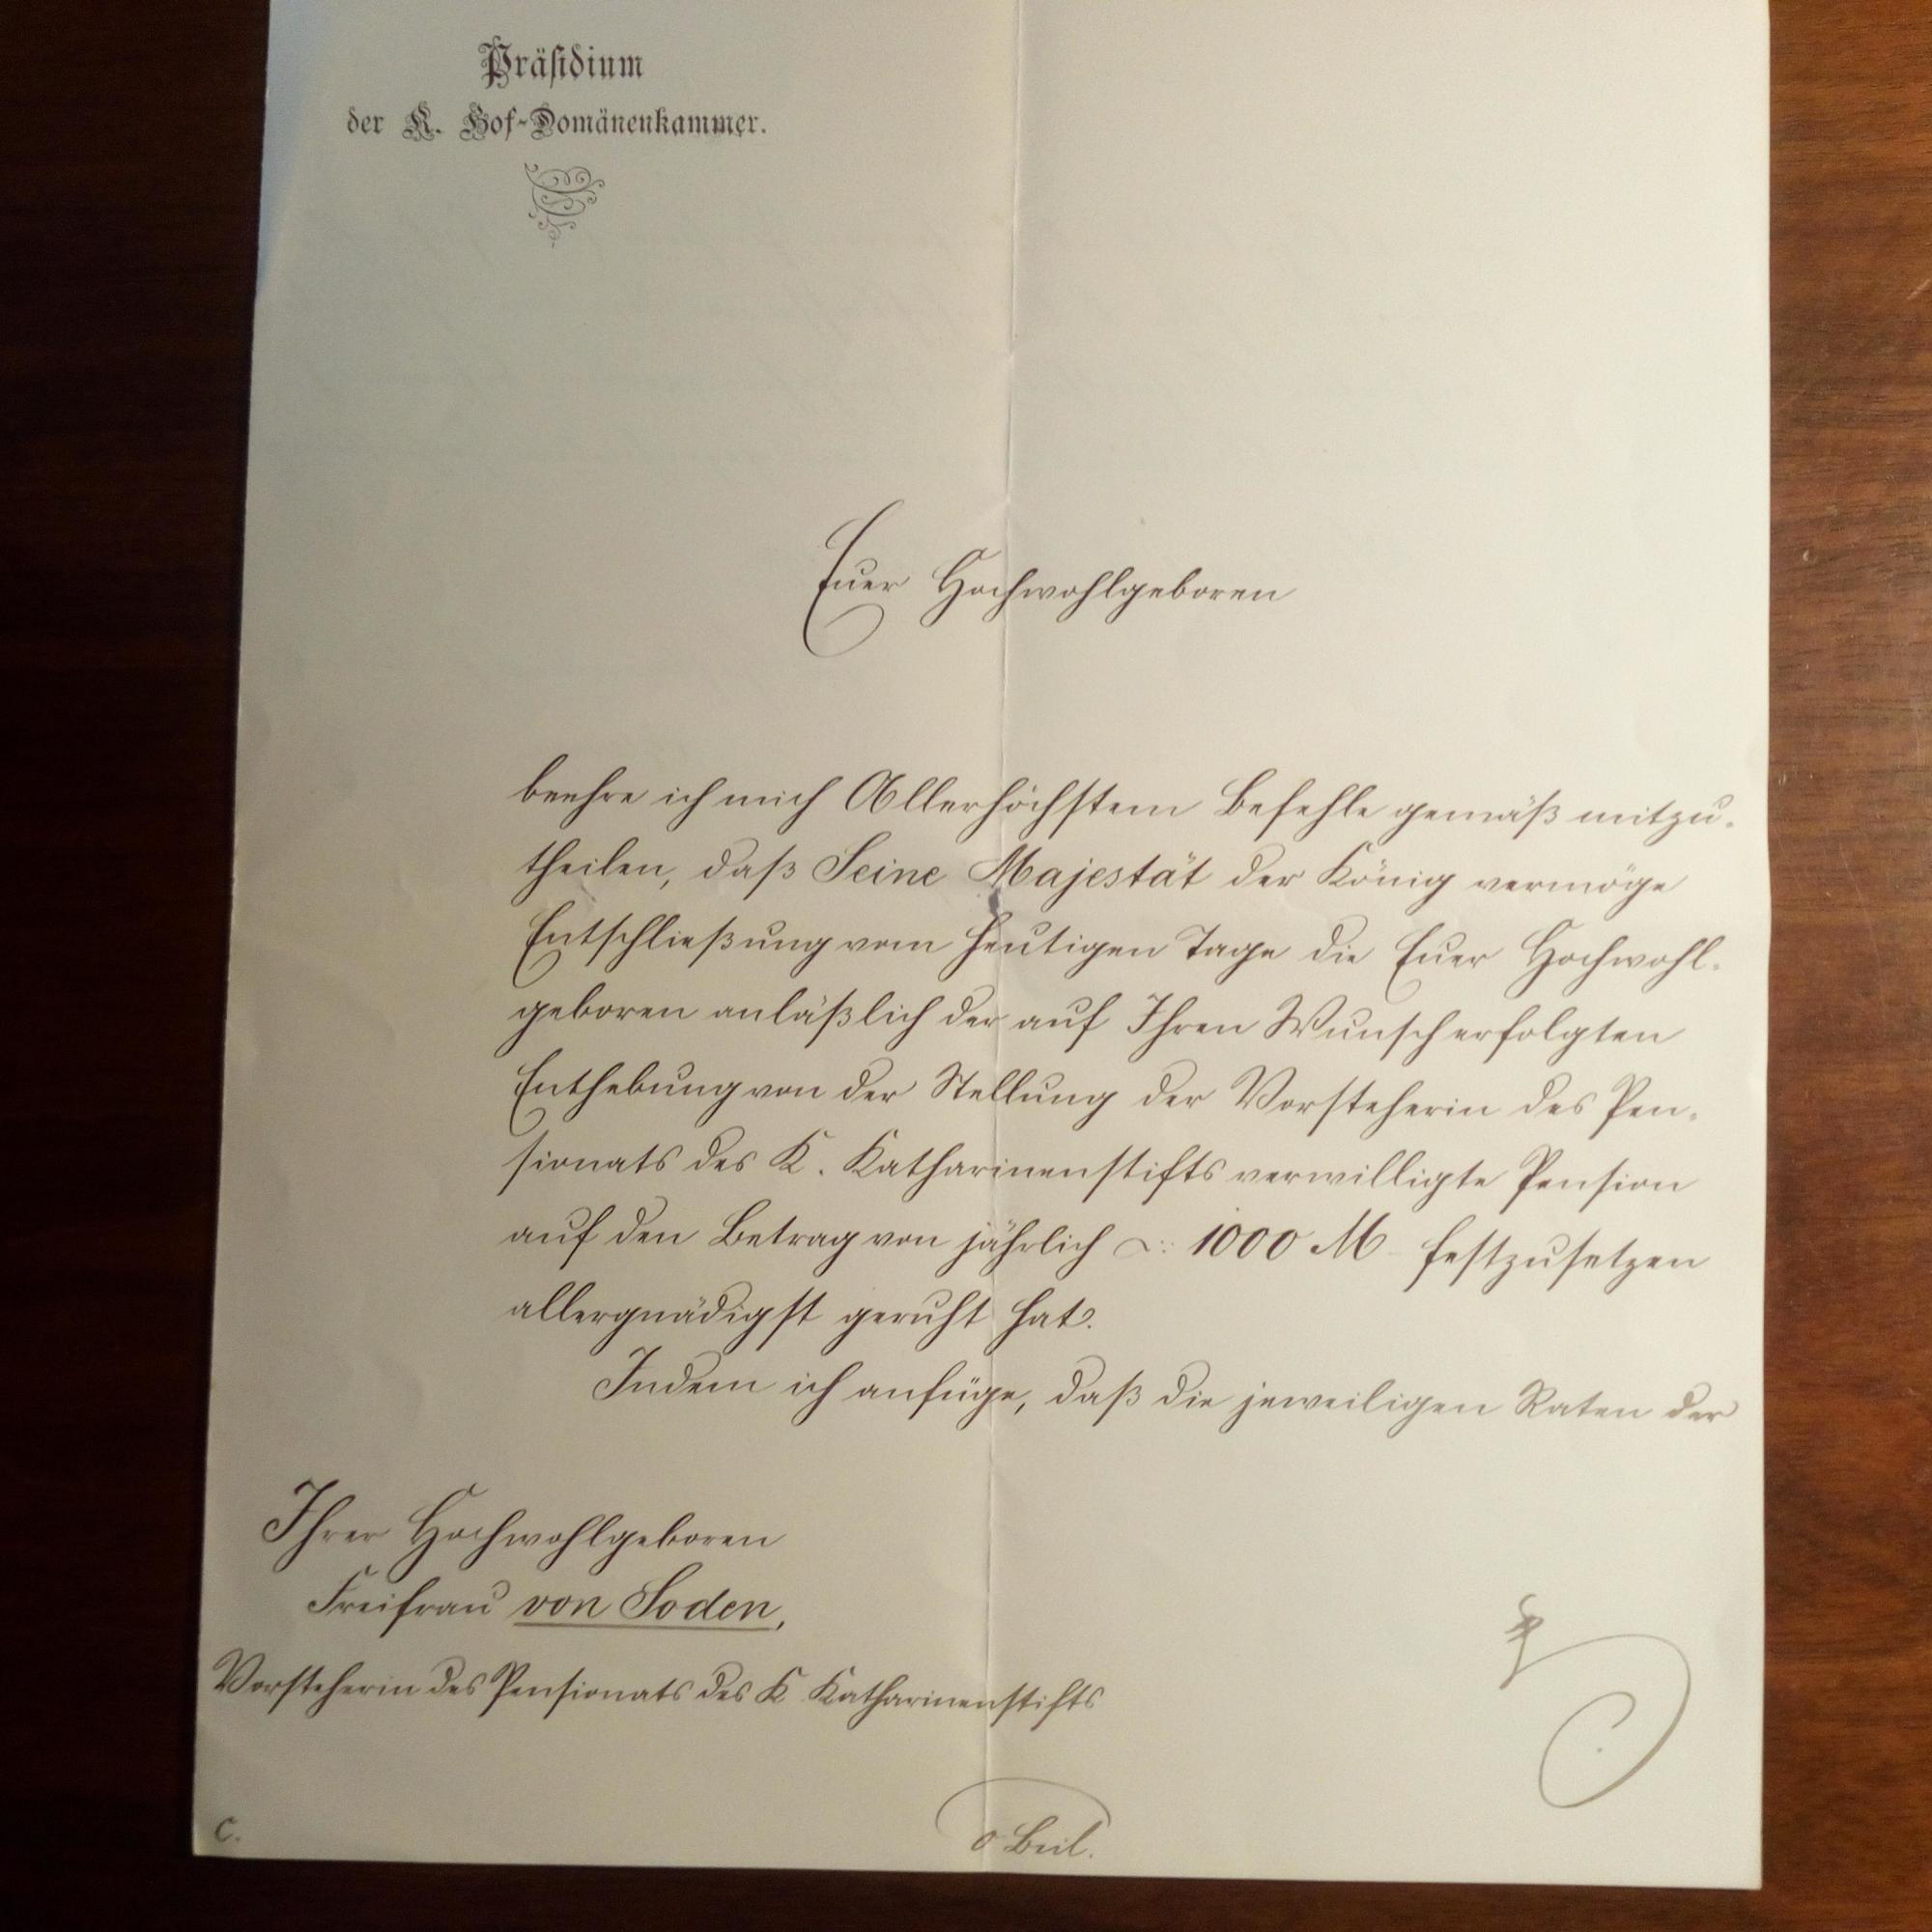 Präsidium
der K. Hof-Domänenkammer.
Euer Hochwohlgeboren
beehre ich mich Allerhöchstem Befehle gemäß mitzu-
theilen, daß Seine Majestät der König vermöge
Entschließung vom heutigen Tage die Euer Hochwohl-
geboren anläßlich der auf Ihren Wunsch erfolgten
Enthebung von der Stellung der Vorsteherin des Pen-
sionats des K. Katharinenstifts verwilligte Pension
auf den Betrag von jährlich 1000 M festzusetzen
allergnädigst geruht hat.
Indem ich anfüge, daß die jeweiligen Raten der
Ihrer Hochwohlgeboren
Freifrau von Soden,
Vorsteherin des Pensionats des K Katharinenstifts
C.
0 Beil.